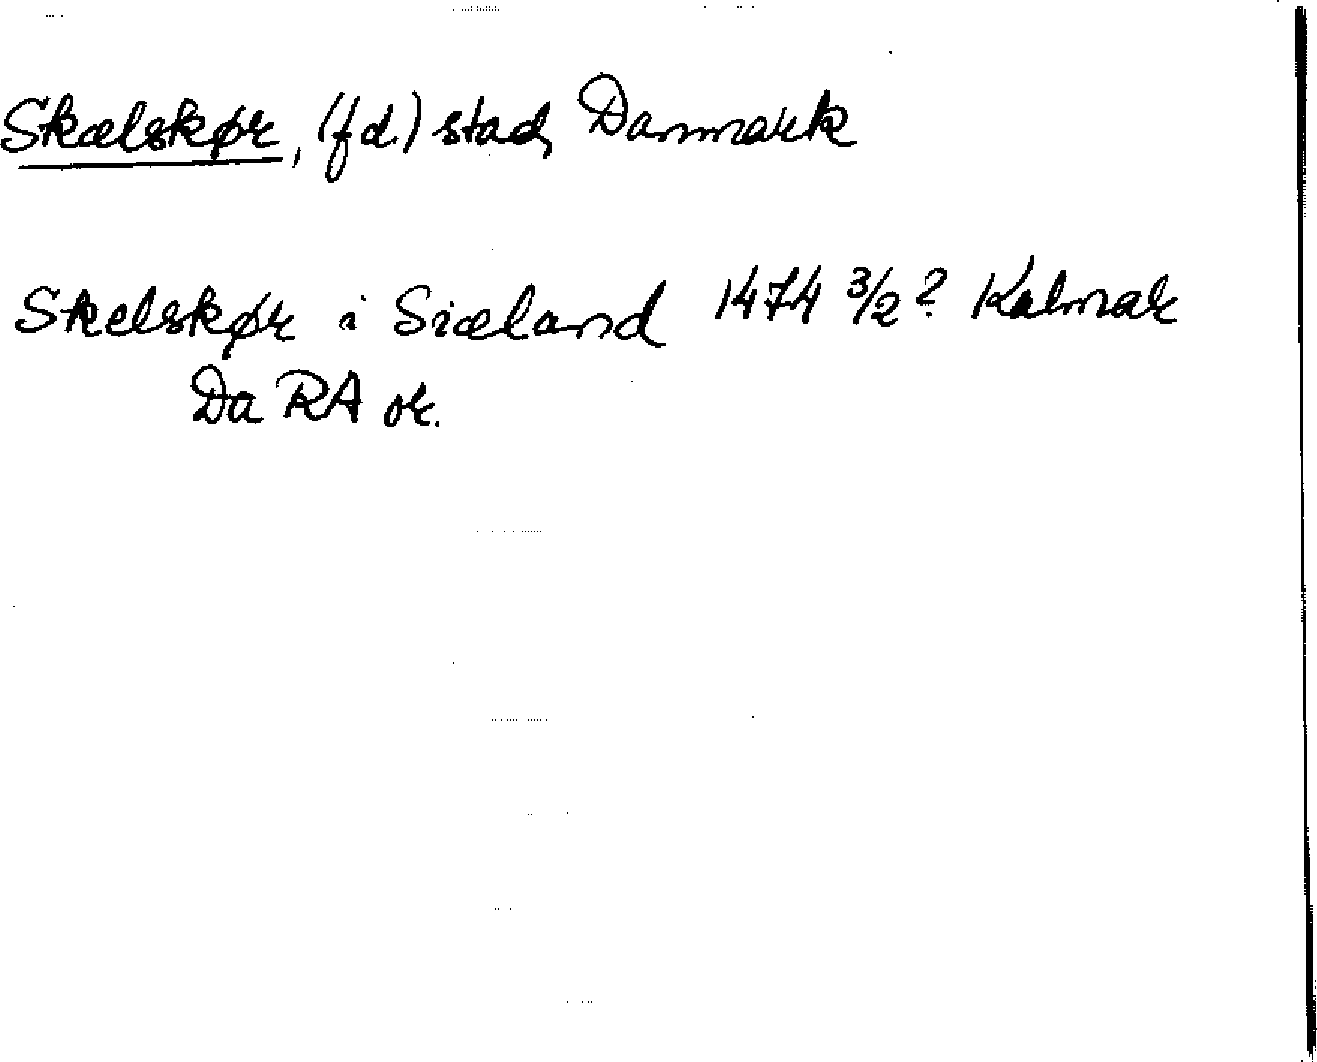 Skælskør, (fd.) stad, Danmark
Skelskør i Siæland 1474 3/2? Kalmar
Da RA or.